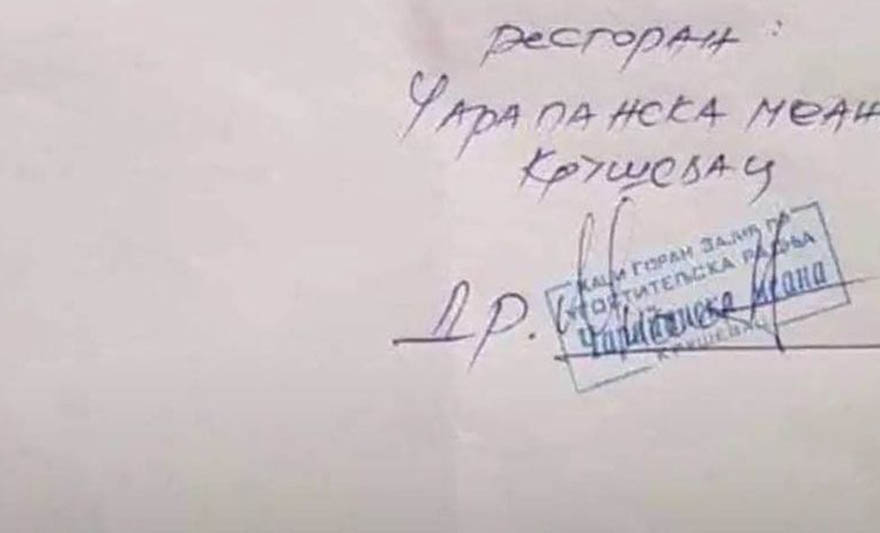 ресторан:
Чарапанска меан
Крушевац
Др.
КАЦИ ГОРАН
УГОСТИТЕЉСКА РАДЊА
Чарапанска меана
КРУШЕВАЦ